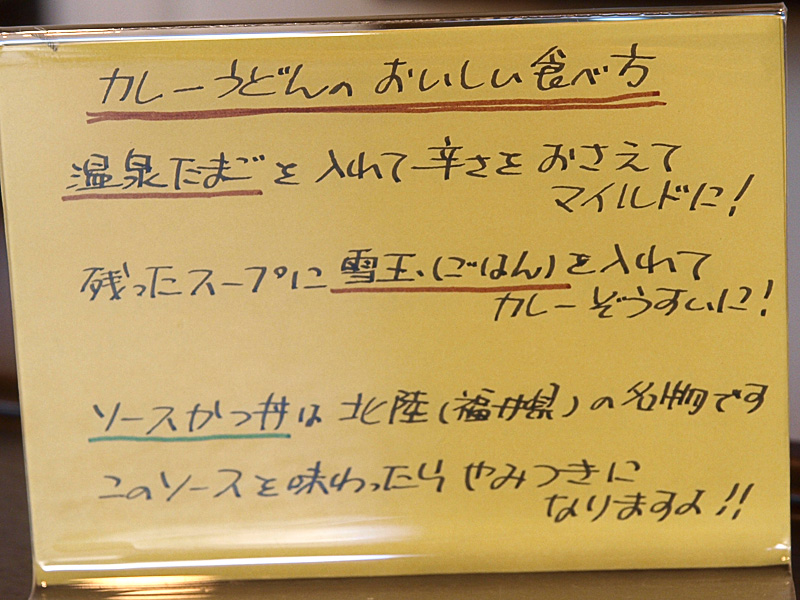 カレーうどんの おいしい食べ方
温泉たまごを 入れて 辛さを おさえて
マイルドに!
残ったスープに 雪玉、(ごはん)を入れて
カレーぞうすいに!
ソースかつ丼は 北陸(福井県)の名物です
このソースを味わったら やみつきに
なりますよ!!